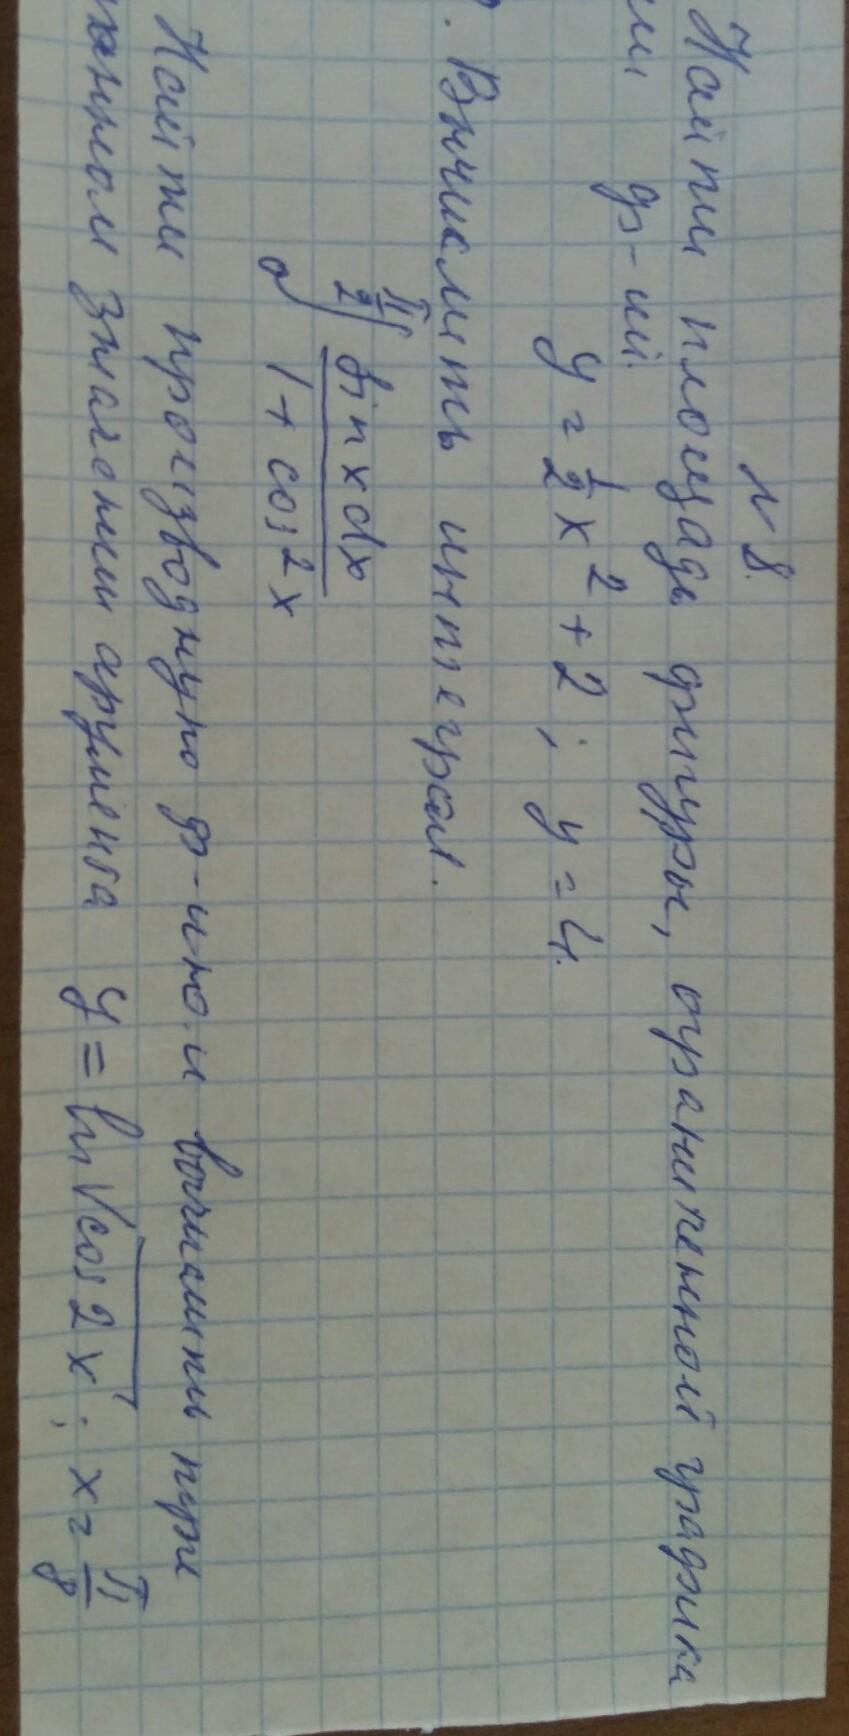 N 8.
Найти площадь фигуры, ограниченной графика
ми ф-ий.
y = 1/2 x² + 2 ; y = 4.
Вычислить интеграл.
∫₀^(π/2) sin x dx / (1 + cos² x)
Найти производную ф-ию и вычислить при
значении аргумента y = ln √cos 2x ; x = π/8